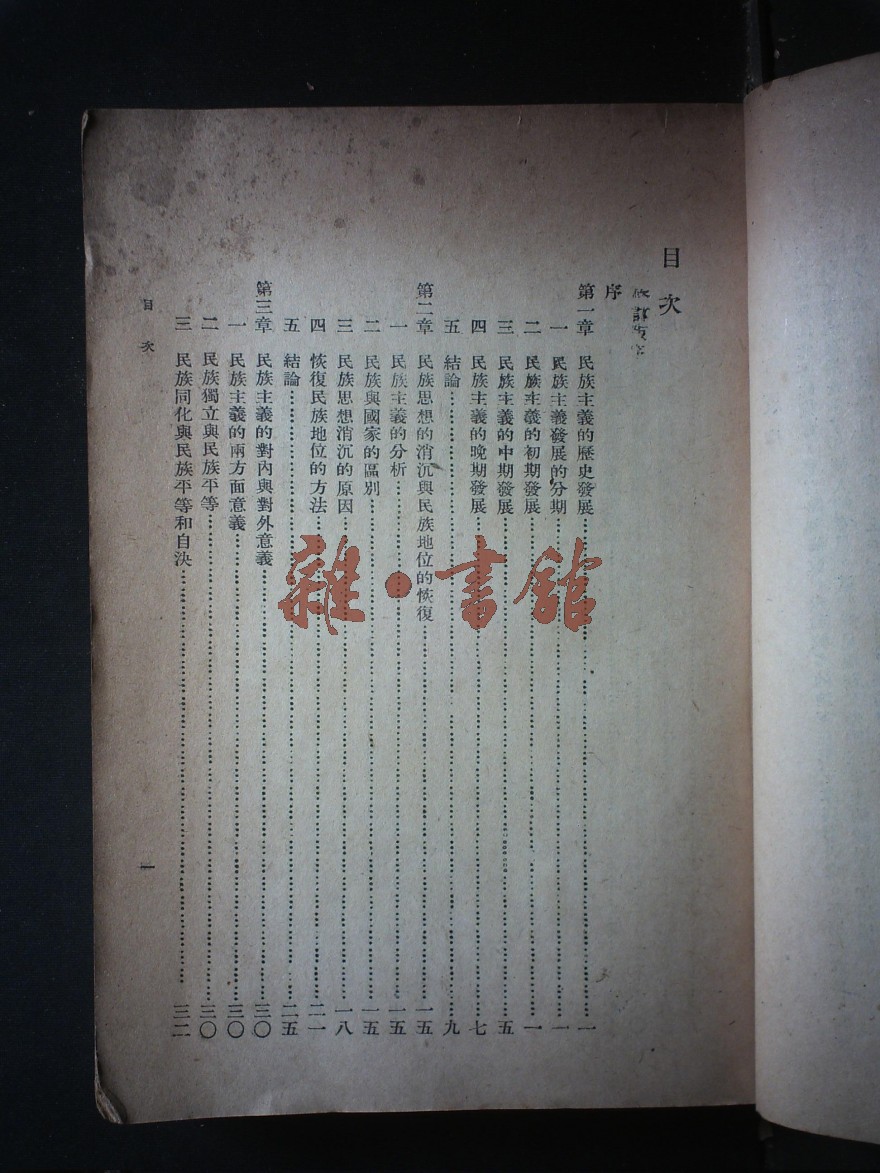 目次
序
第一章 民族主義的歷史發展……一
一 民族主義發展的分期……一
二 民族主義的初期發展……一
三 民族主義的中期發展……五
四 民族主義的晚期發展……七
五 結論……九
第二章 民族思想的消沉與民族地位的恢復……一五
一 民族主義的分析……一五
二 民族與國家的區別……一五
三 民族思想消沉的原因……一八
四 恢復民族地位的方法……二一
五 結論……二五
第三章 民族主義的對內與對外意義……三〇
一 民族主義的兩方面意義……三〇
二 民族獨立與民族平等……三〇
三 民族同化與民族平等和自決……三二
目次
一
雜·書館